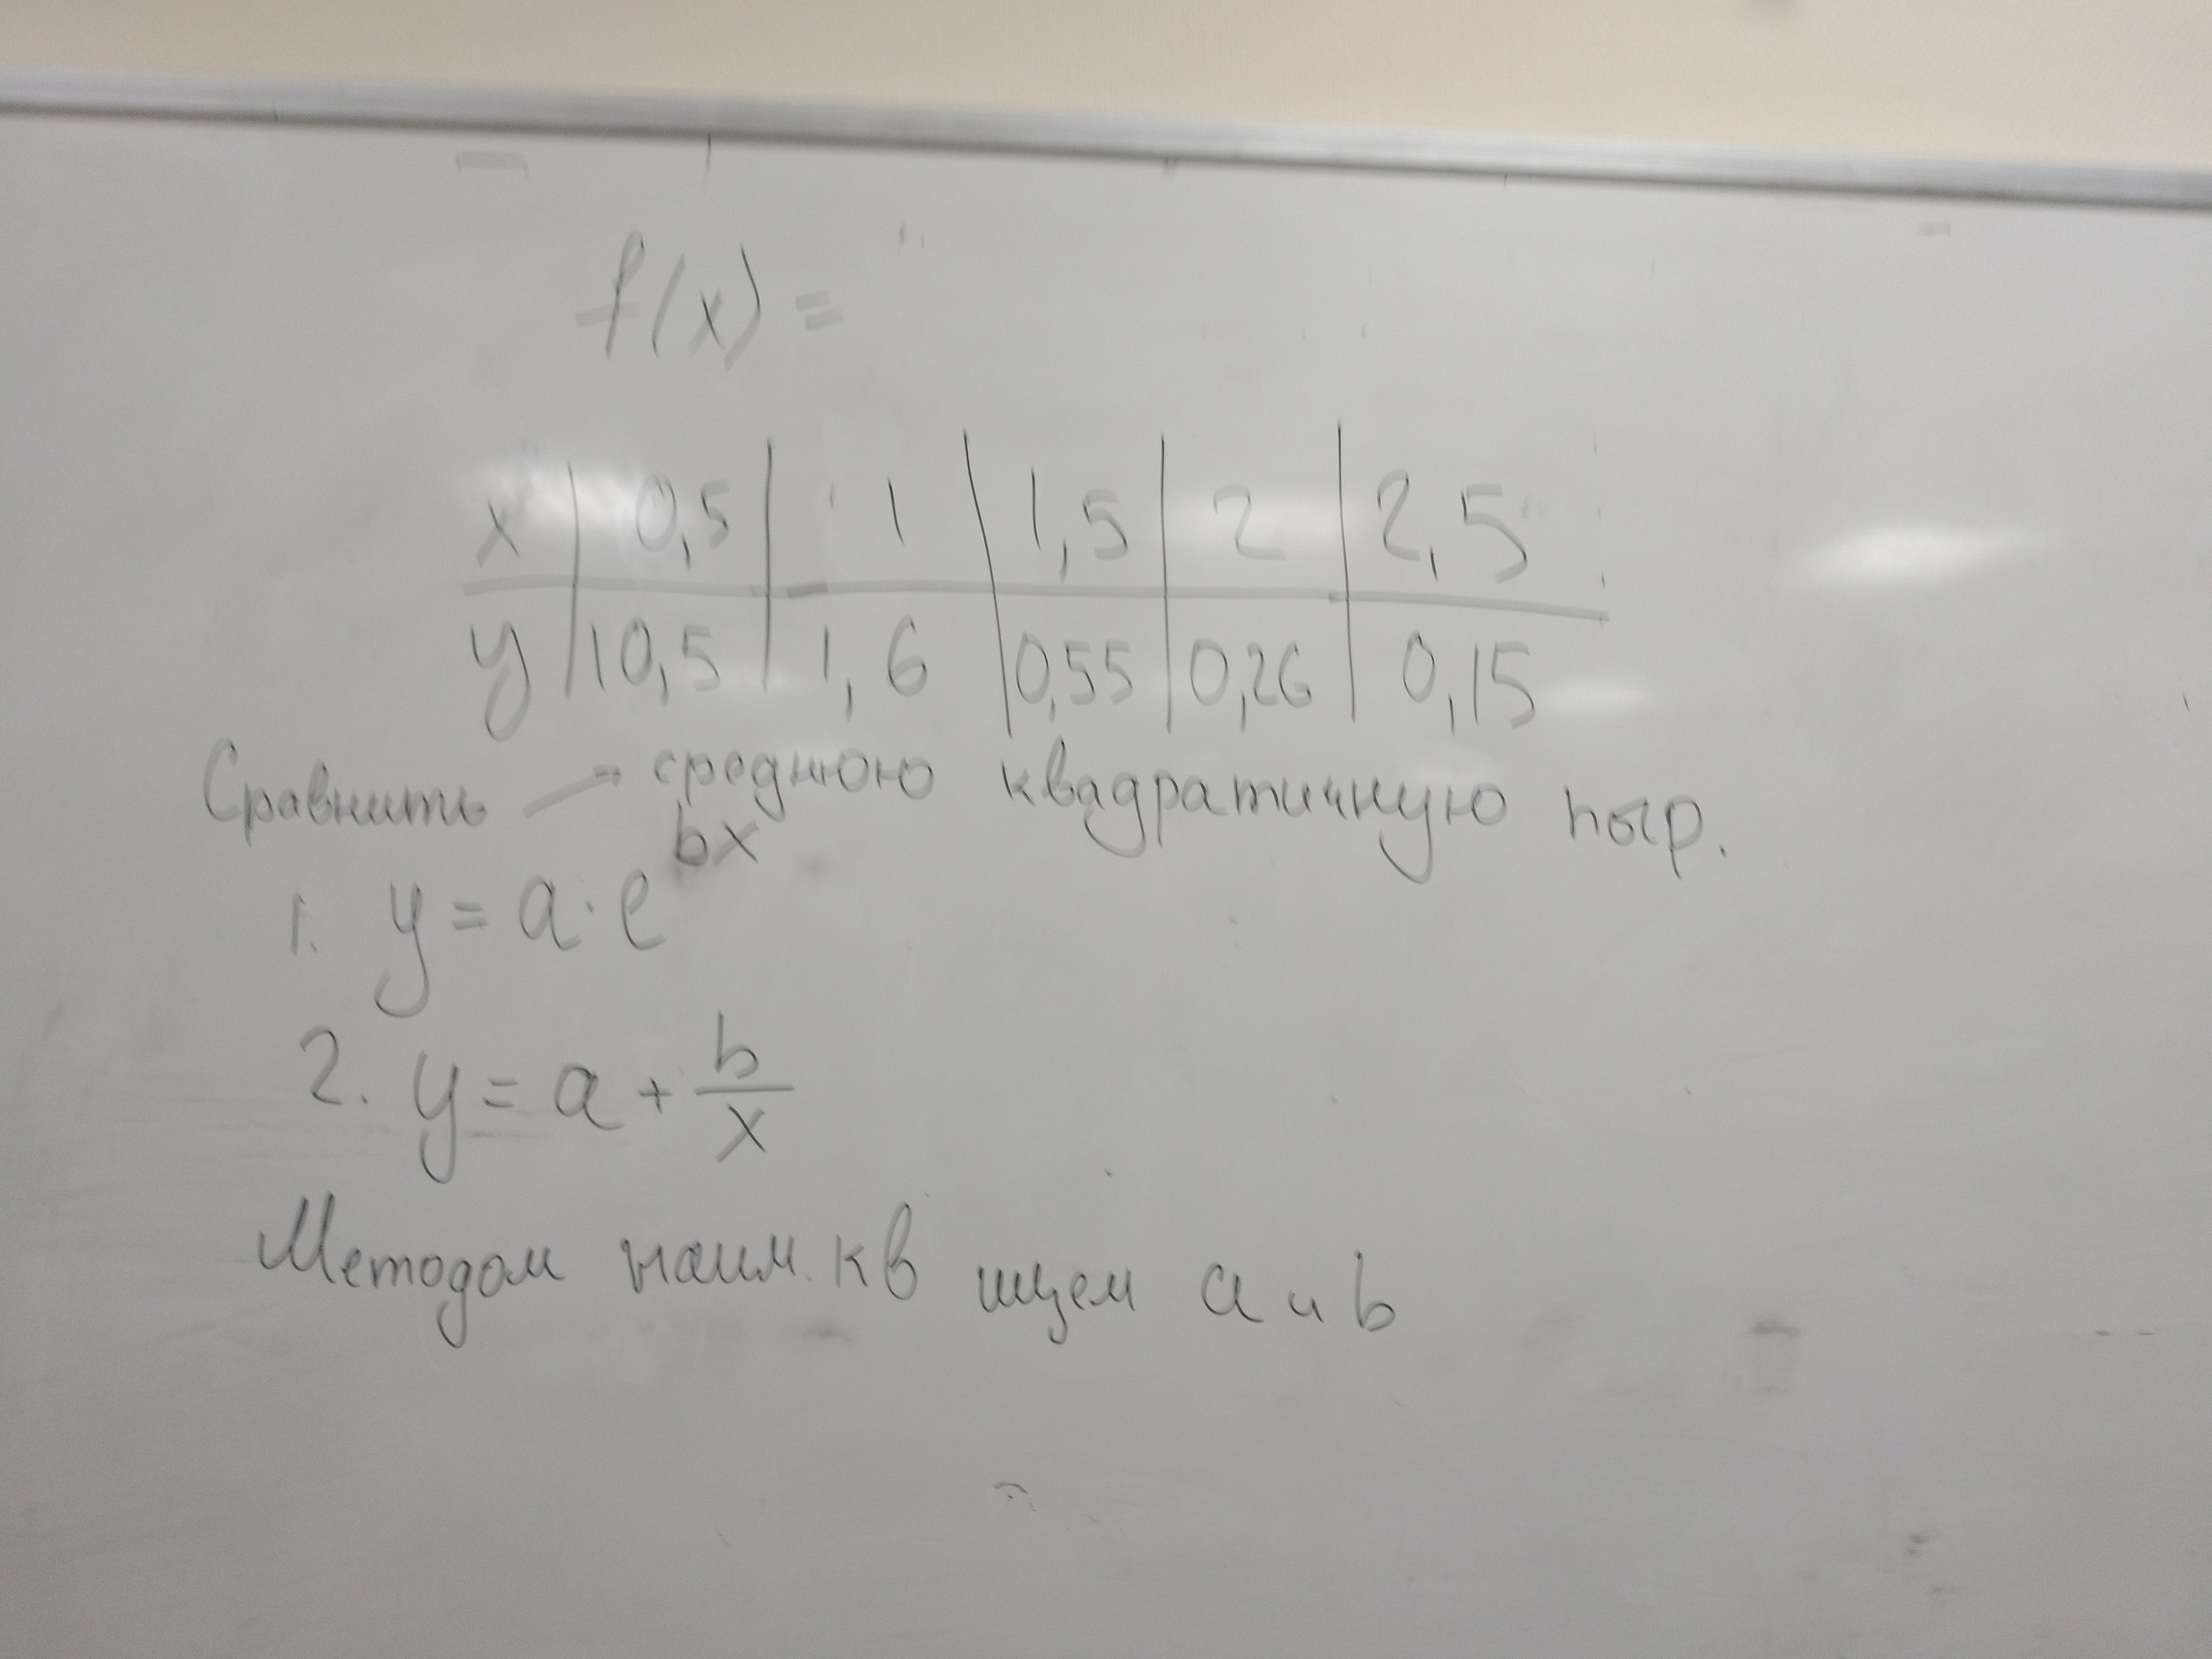 f(x) =
x | 0,5 | 1 | 1,5 | 2 | 2,5
y | 10,5 | 1,6 | 0,55 | 0,26 | 0,15
Сравнить → среднюю квадратичную погр.
1. y = a · e^{bx}
2. y = a + b/x
Методом наим. кв ищем a и b